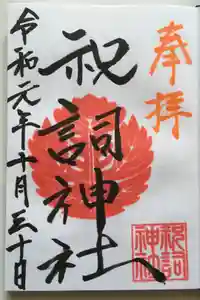 奉拝
祝詞神社
祝詞
神社
令和元年十月三十日